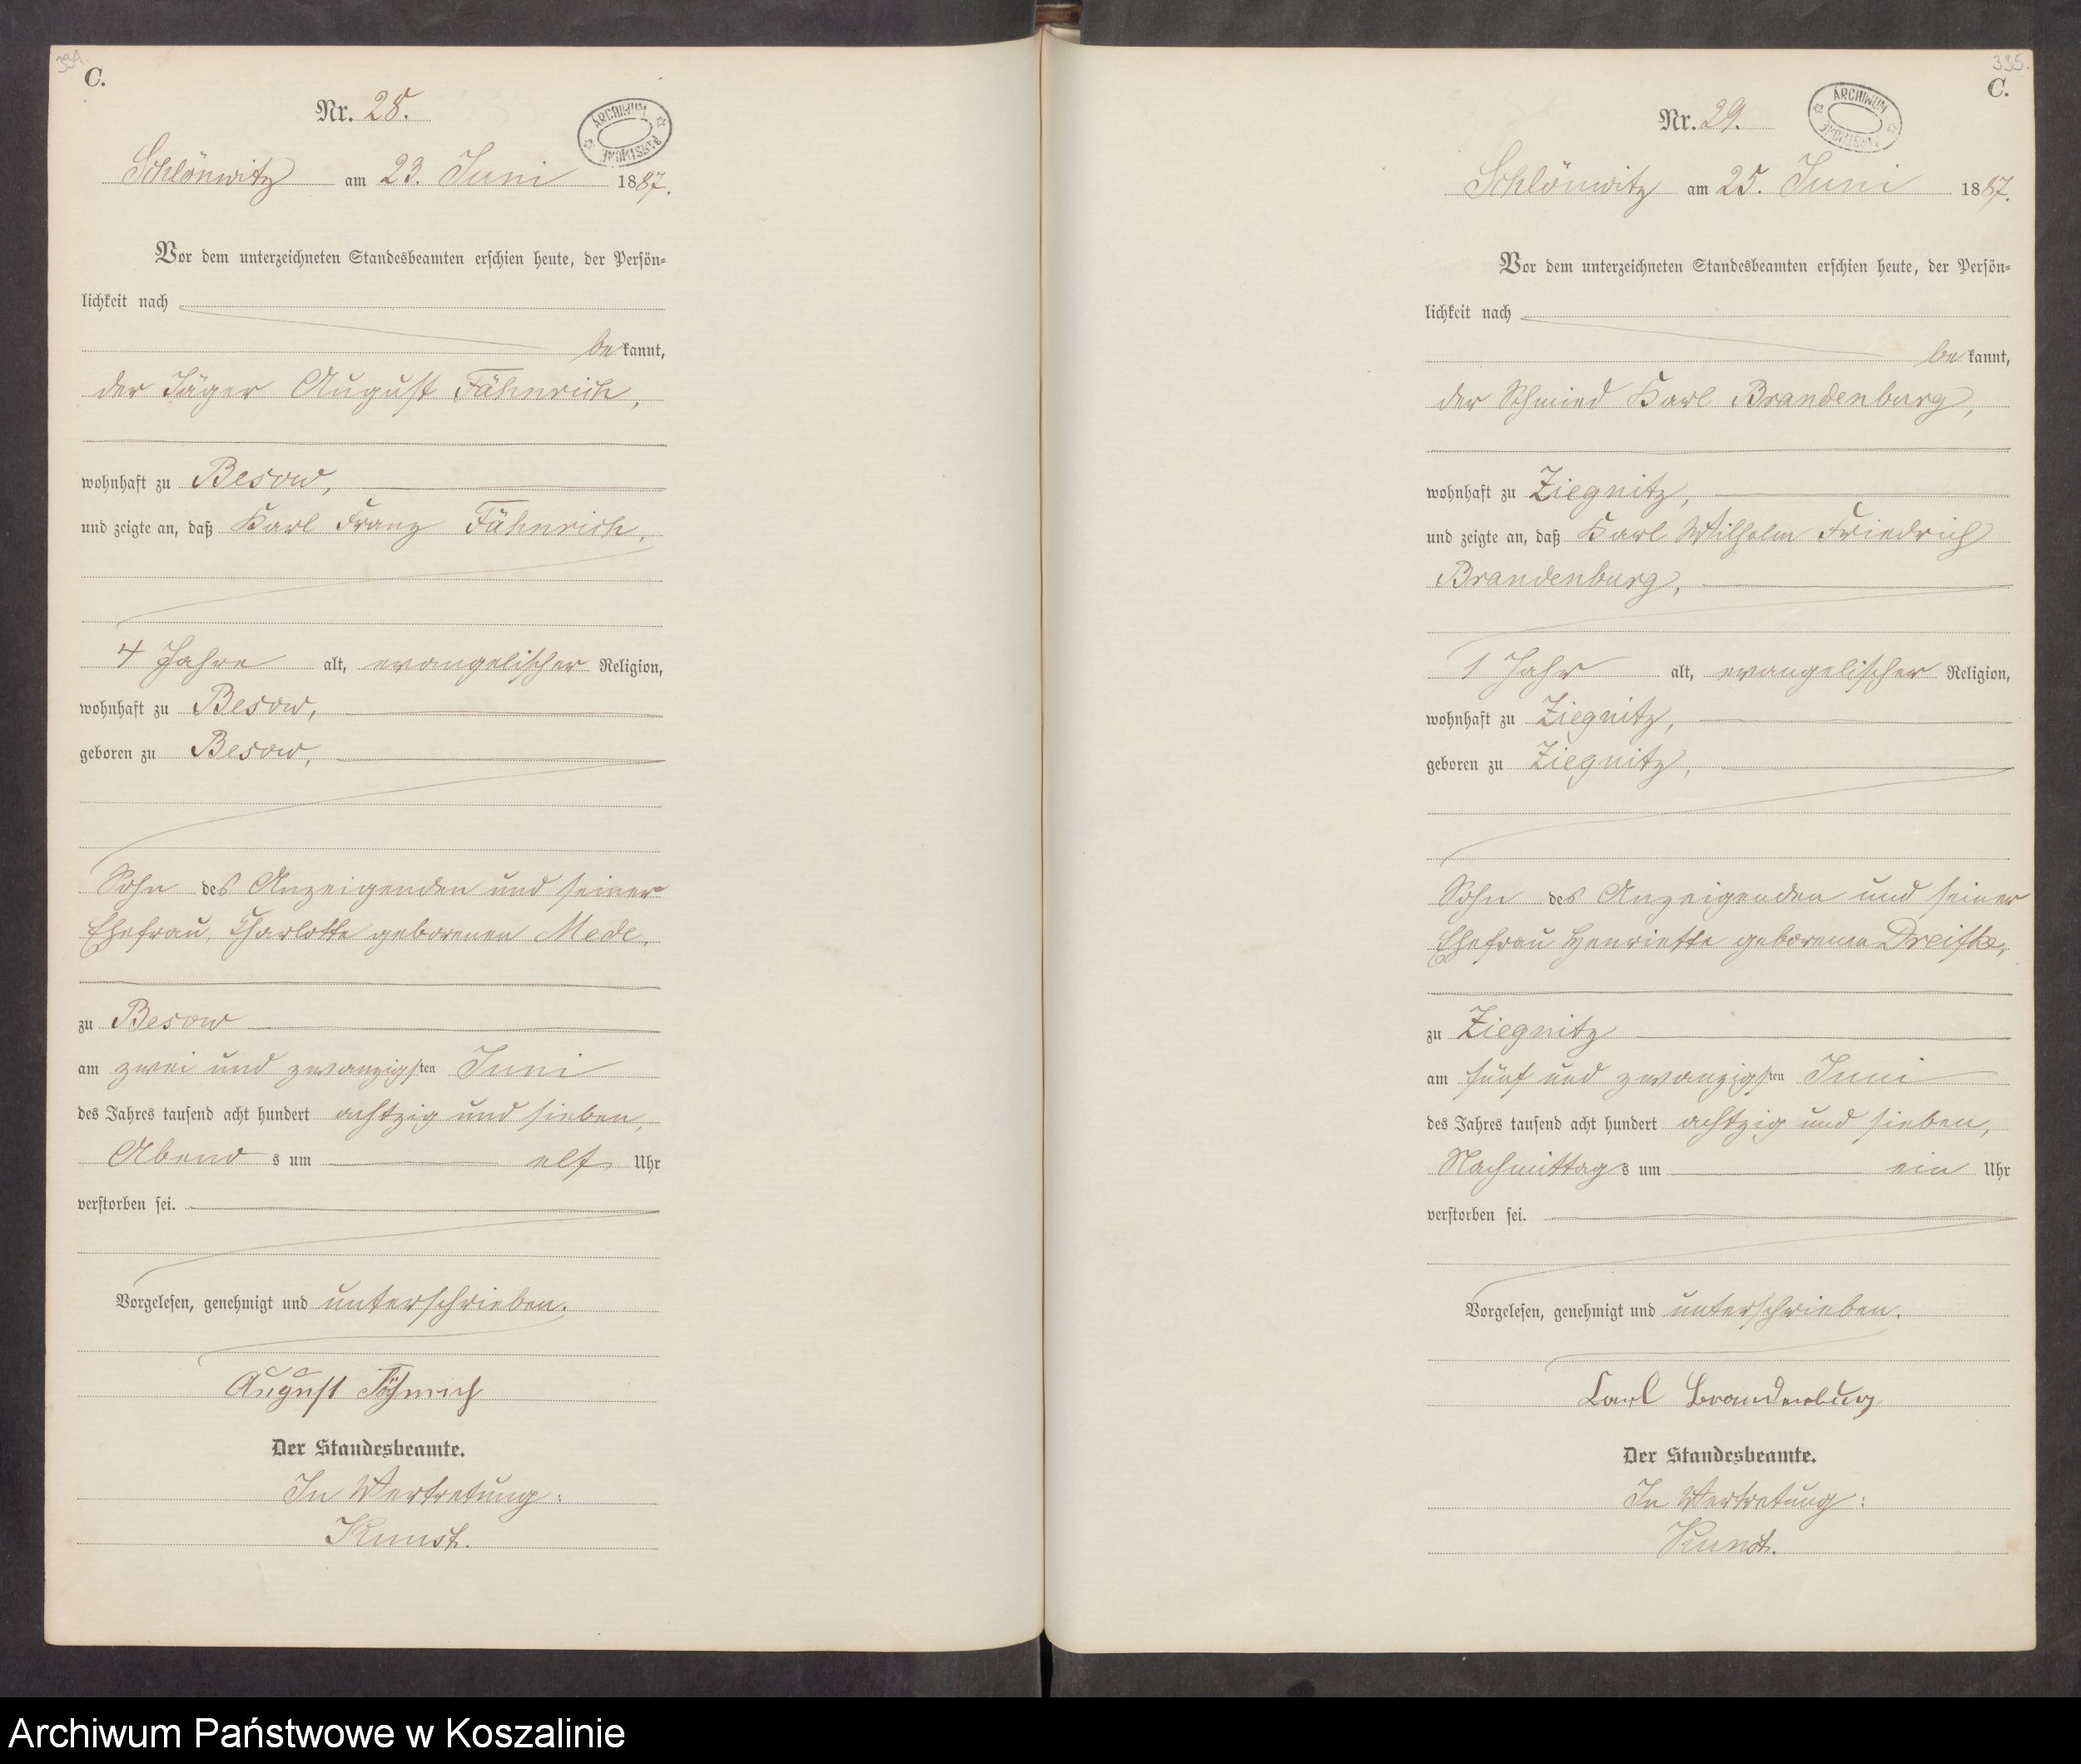 334.
C.
Nr. 28.
ARCHIWUM
PAŃSTWOWE
Schlönwitz am 23. Juni 1887.
Vor dem unterzeichneten Standesbeamten erschien heute, der Persön-
lichkeit nach
bekannt,
der Jäger August Fähnrich,
wohnhaft zu Besow,
und zeigte an, daß Karl Franz Fähnrich,
4 Jahre alt, evangelischer Religion,
wohnhaft zu Besow,
geboren zu Besow,
Sohn des Anzeigenden und seiner
Ehefrau, Charlotte geborenen Mede,
zu Besow
am zwei und zwanzigsten Juni
des Jahres tausend acht hundert achtzig und sieben,
Abends um elf Uhr
verstorben sei.
Vorgelesen, genehmigt und unterschrieben.
August Fähnrich
Der Standesbeamte.
In Vertretung:
Kunst.
335.
C.
Nr. 29.
ARCHIWUM
PAŃSTWOWE
Schlönwitz am 25. Juni 1887.
Vor dem unterzeichneten Standesbeamten erschien heute, der Persön-
lichkeit nach
bekannt,
der Schmied Karl Brandenburg,
wohnhaft zu Ziegnitz,
und zeigte an, daß Karl Wilhelm Friedrich
Brandenburg,
1 Jahr alt, evangelischer Religion,
wohnhaft zu Ziegnitz,
geboren zu Ziegnitz,
Sohn des Anzeigenden und seiner
Ehefrau Henriette geborenen Dreifke,
zu Ziegnitz
am fünf und zwanzigsten Juni
des Jahres tausend acht hundert achtzig und sieben,
Nachmittags um ein Uhr
verstorben sei.
Vorgelesen, genehmigt und unterschrieben.
Carl Brandenburg
Der Standesbeamte.
In Vertretung:
Kunst.
Archiwum Państwowe w Koszalinie